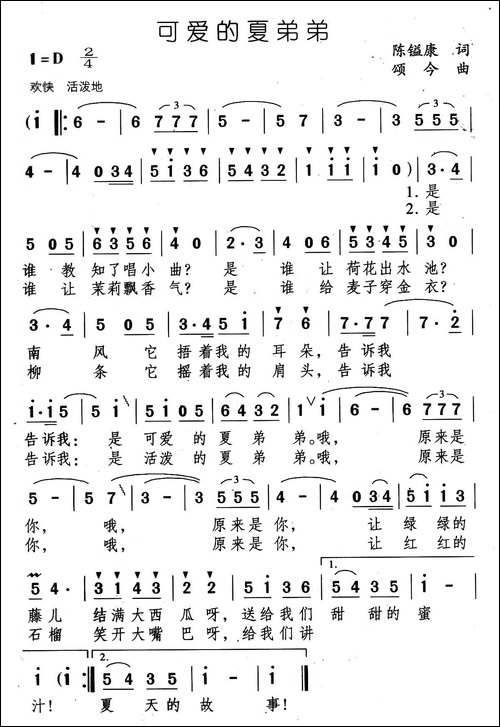 可爱的夏弟弟
1=D 2/4
陈镒康 词
颂 今 曲
欢快 活泼地
(i ‖: 6 - | 6 777 | 5 - | 5 57 | 3 - | 3 555 |
4 - | 4 034 | 5 i 3 i | 5 4 3 2 | 1 0 1 1 | 1 0 ) | 3·4 |
1.是
2.是
5 05 | 6 3 5 6 | 4 0 | 2·3 | 5 05 | 5 3 4 5 | 3 0 |
谁 教 知了唱小 曲? 是 谁 让 荷花出水 池?
谁 让 茉莉飘香 气? 是 谁 给 麦子穿金 衣?
3·4 | 5 05 | 3·4 5 i | 7 6 | 7·7 7 | 7·2 |
南 风 它 捂着我的 耳 朵, 告诉我
柳 条 它 摇着我的 肩 头, 告诉我
i·i 5 | 5 i | 5 i 0 5 | 6 4 3 2 | 1 i | 6 - | 6 777 |
告诉我: 是 可爱 的 夏 弟 弟。哦, 原来是
告诉我: 是 活泼 的 夏 弟 弟。哦, 原来是
5 - | 5 7 | 3 - | 3 555 | 4 - | 4 034 | 5 i i 3 |
你, 哦, 原来是 你, 让 绿 绿的
你, 哦, 原来是 你, 让 红 红的
5 4· | 3 1 4 3 | 2 2 | 5 1 3 6 | 1. 5 4 3 5 |
藤儿 结满大西 瓜 呀, 送给我们 甜 甜的 蜜
石榴 笑开大嘴 巴 呀, 给我们讲
i (i :‖ 2. 5 4 3 5 | i i 0 ‖
汁! 夏 天的 故 事!